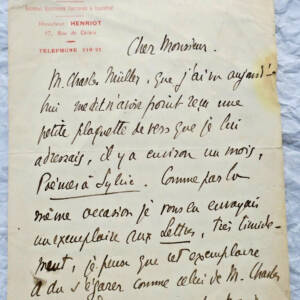 Directeur: HENRIOT
17, Rue de Calais
TÉLÉPHONE 219-21
Cher Monsieur.
M. Charles Müller, que j'ai vu aujourd'-
hui me dit n'avoir point reçu une
petite plaquette de vers que je lui
adressais, il y a environ un mois,
à Sylvie. Comme par la
même occasion je vous en envoyais
un exemplaire aux Lettres, très timide-
ment, je pense que cet exemplaire
a du s'égarer comme celui de M. Charles